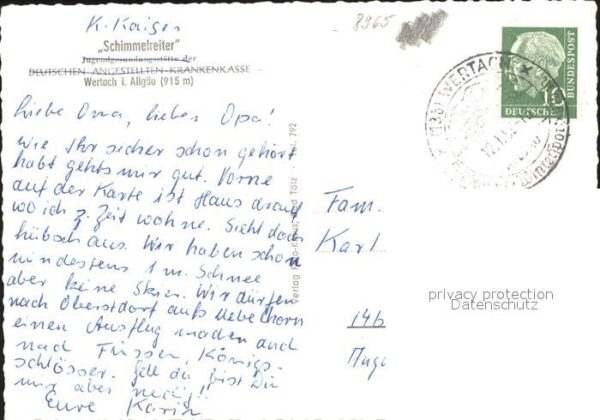 K. Kaiser
8965
„Schimmelreiter"
Jugendgenesungsstätte der
DEUTSCHEN ANGESTELLTEN-KRANKENKASSE
Wertach i. Allgäu (915 m)
Liebe Oma, lieber Opa!
Wie Ihr sicher schon gehört
habt gehts mir gut. Vorne
auf der Karte ist Haus drauf
wo ich z. Zeit wohne. Sieht doch
hübsch aus. Wir haben schon
mindestens 1 m. Schnee
aber keine Skier. Wir dürfen
nach Oberstdorf aufs Nebelhorn
einen Ausflug machen und
nach Füssen, Königs-
schlösser. Gell da bist Du
mir aber neidig!
Eure Karin
Verlag Tölz 792
Fam.
Karl
14b
WERTACH
10
DEUTSCHE
BUNDESPOST
privacy protection
Datenschutz